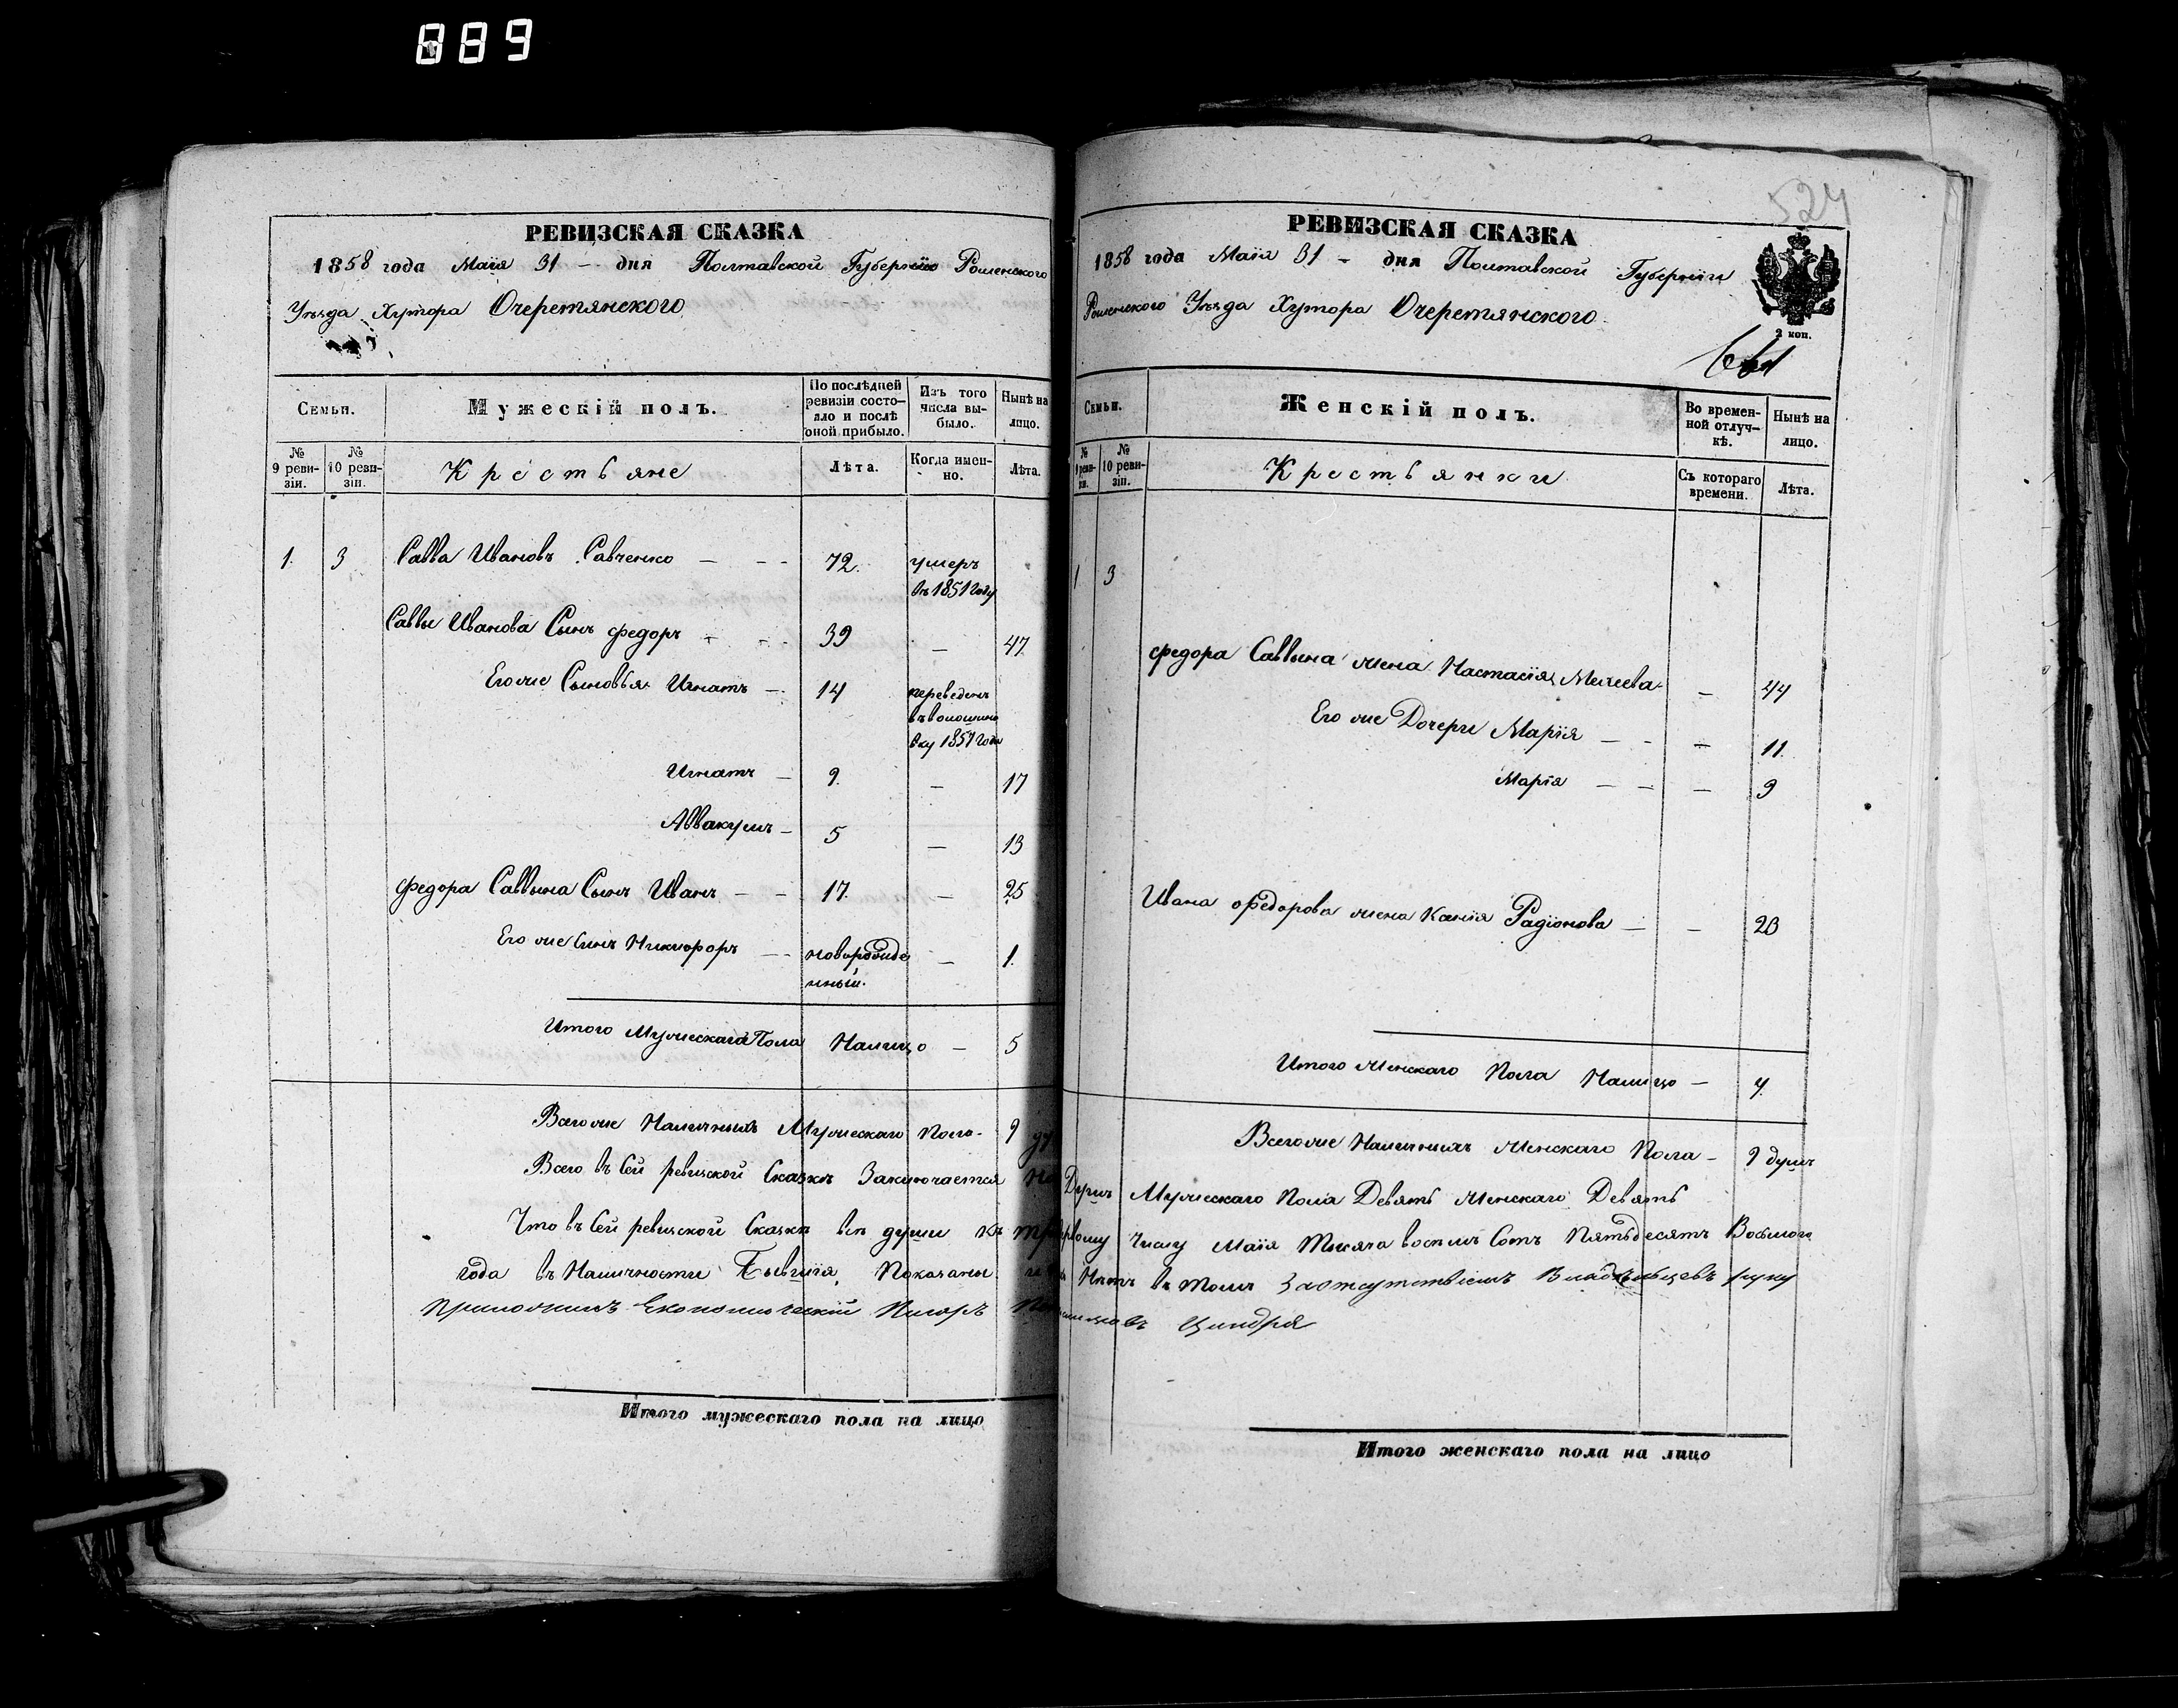 889
РЕВИЗСКАЯ СКАЗКА
1858 года Маія 31 - дня Полтавской Губерніи Роменского
Уѣзда Хутора Очеретянского
Семьи.
Мужескій полъ.
По послѣдней ревизіи состояло и послѣ оной прибыло.
Изъ того числа выбыло.
Нынѣ на лицо.
№ 9 ревизіи.
№ 10 ревизіи.
Крестьяне
Лѣта.
Когда именно.
Лѣта.
1. 3 Савва Ивановъ Савченко — - - 72. умеръ
въ 1851 году
Саввы Иванова Сынъ Федоръ - - - 39 — 47
Его же Сыновья Игнатъ - 14 переведенъ
1857 года
Игнатъ — 9. — 17
Аввакумъ — 5 — 13
Федора Саввина Сынъ Иванъ — - 17. — 25
Его же Сынъ Никифоръ — - новорожде
нный. — 1.
Итого Мужескаго Пола Налицо — 5
Всего же Наличныхъ Мужескаго Пола - 9
Всего въ Сей ревизской Сказкѣ Заключается
Что въ Сей ревизской Сказкѣ всѣ души къ
года въ Наличности Бывшія, Показаны
Приложилъ Економическій Писарь
Итого мужескаго пола на лицо
524
РЕВИЗСКАЯ СКАЗКА
1858 года Маія 31 - дня Полтавской Губерніи
Роменского Уѣзда Хутора Очеретянского
2 коп.
Семьи.
Женскій полъ.
Во временной отлучкѣ.
Нынѣ на лицо.
№ 9 ревизіи.
№ 10 ревизіи.
Крестьянки
Съ котораго времени.
Лѣта.
1 3
Федора Саввина жена Настасія — 44
Его же Дочери Марія — - — 11.
Марія — — — 9
Ивана Федорова жена Радіонова — — 23
Итого Женскаго Пола Налицо — 4.
Всего же Наличныхъ Женскаго Пола — 9 душъ
Душъ Мужескаго Пола Девять Женскаго Девять
Числу Маія Тысяча восемь Сотъ Пятьдесятъ Восьмого
Нѣтъ въ томъ За отсутствіемъ Владѣльцевъ руку
Циндря
Итого женскаго пола на лицо